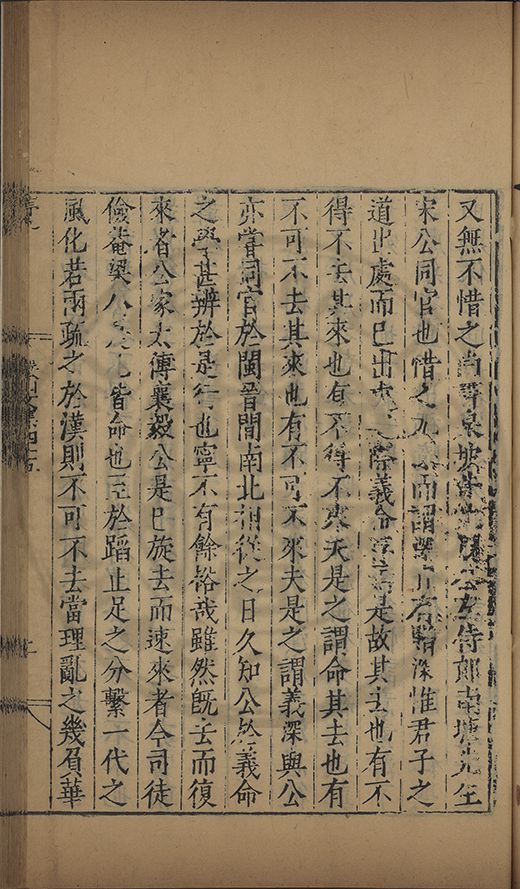 又無不惜之尚書泉坡公左侍郎南塘先生
宋公同官也惜之尤而謂深惟君子之
道出處而已出處之際義命是故其去也有不
得不去其來也有不得不來夫是之謂命其去也有
不可不去其來也有不可不來夫是之謂義深與公
亦嘗同官於閩晉間南北相從之日久知公於義命
之學甚辨於是行也寧不有餘裕哉雖然旣去而復
來者公家太傅襄毅公是巳旋去而速來者今司徒
儉菴梁公是也皆命也至於蹈止足之分繫一代之
風化若兩疏之於漢則不可不去當理亂之幾負華